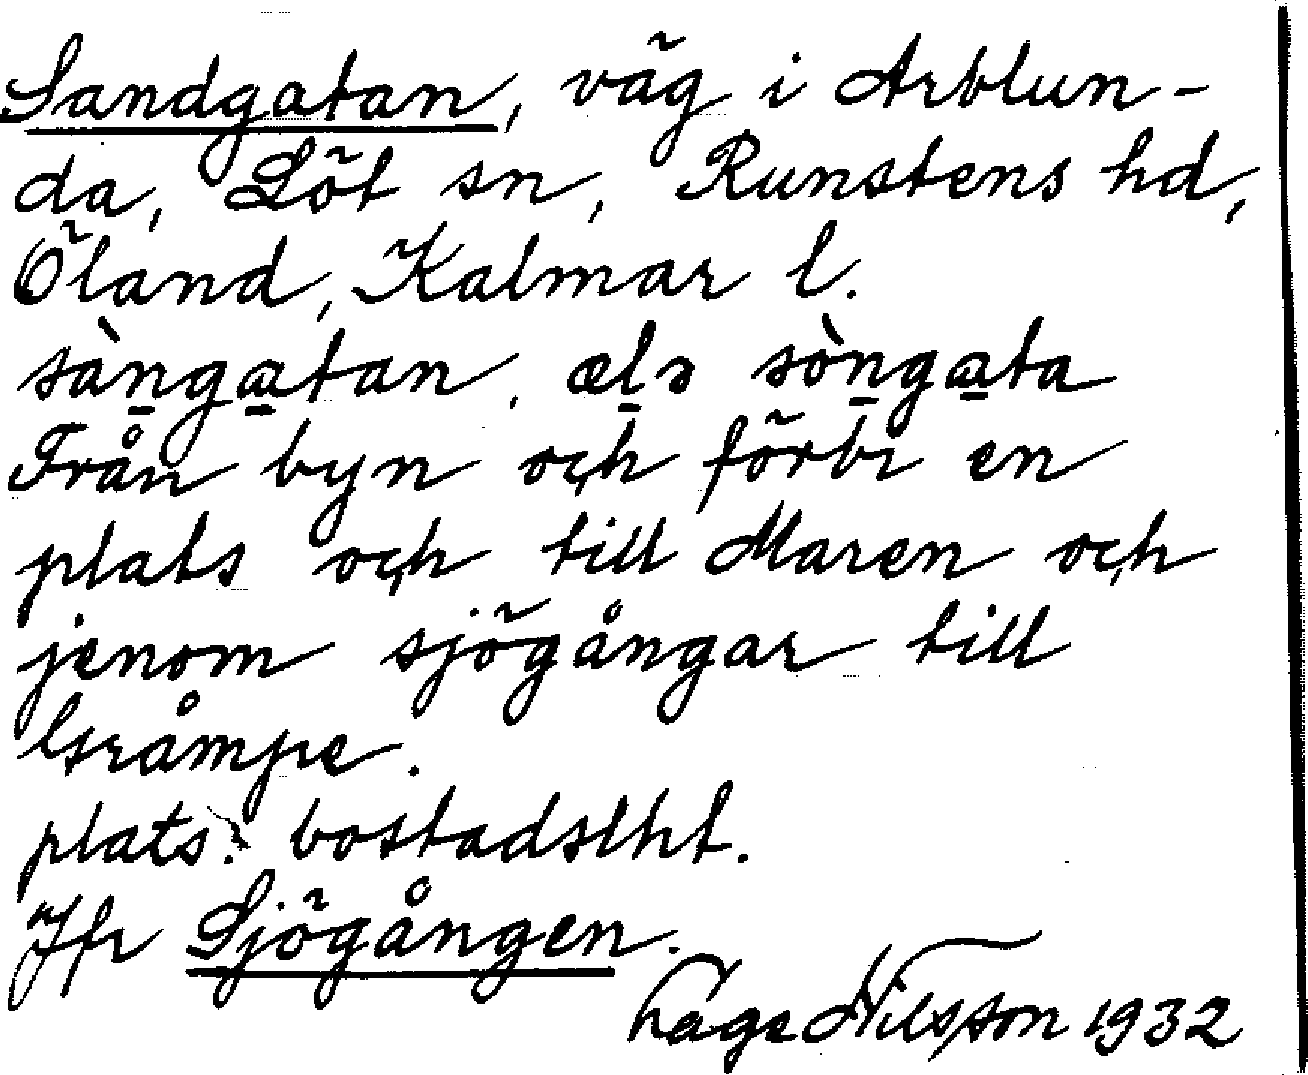 Sandgatan, väg i Arblun-
da, Löt sn, Runstens hd,
Öland, Kalmar l.
sàngatan, ælə sòngata
Från byn och förbi en
plats och till Maren och
jenom sjögångar till
Gråmpe.
plats: bostadslht.
Jfr Sjögången.
Lage Nilsson 1932